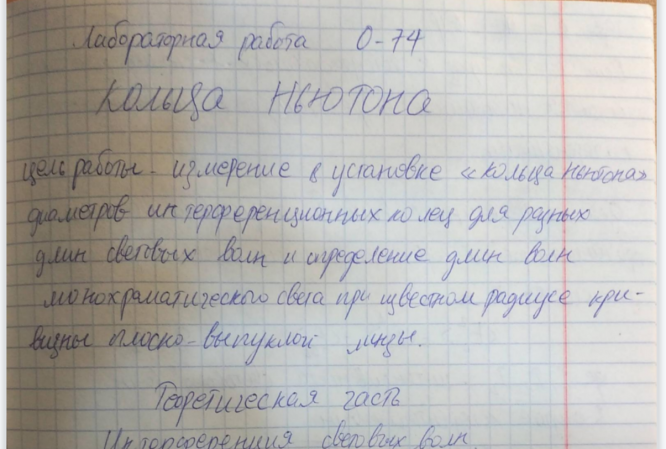 Лабораторная работа О-74
Кольца Ньютона
цель работы - измерение в установке «Кольца Ньютона»
диаметров интерференционных колец для разных
длин световых волн и определение длин волн
монохраматического света при известном радиусе кри-
визны плоско-выпуклой линзы.
Теоретическая часть
Интерференция световых волн